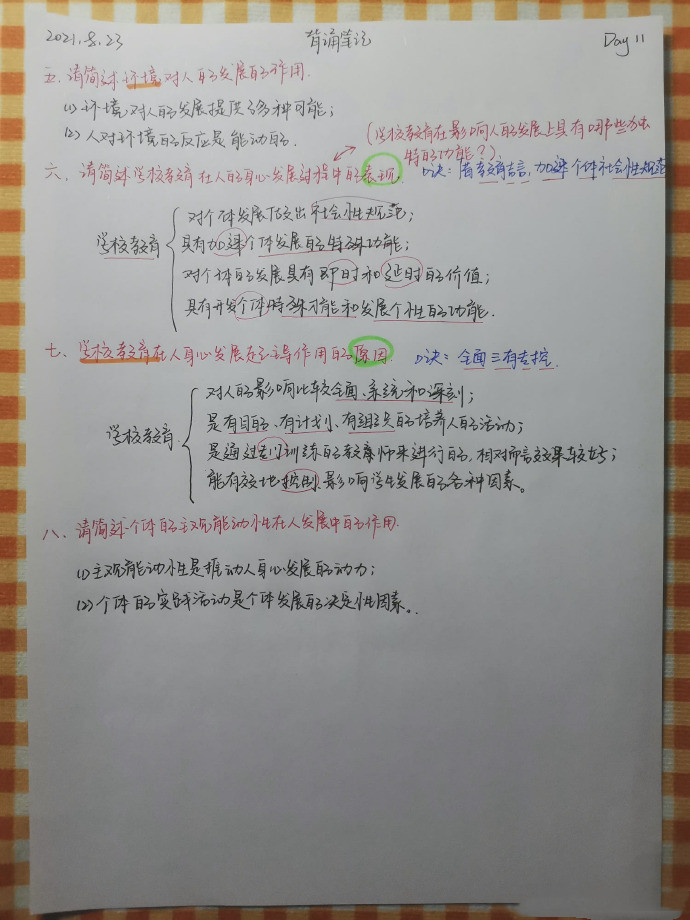 2021.8.23 背诵笔记 Day 11
五、请简述环境对人的发展的作用.
(1) 环境对人的发展提供了各种可能;
(2) 人对环境的反应是能动的.
(学校教育在影响人的发展上具有哪些
特的功能?)
六、请简述学校教育在人的身心发展过程中的表现.
口诀: 加速个体社会性规范
学校教育
对个体发展作出社会性规范;
具有加速个体发展的特殊功能;
对个体的发展具有即时和延时的价值;
具有开发个体特殊才能和发展个性的功能.
七、学校教育在人身心发展起主导作用的原因. 口诀: 全面三有专控.
学校教育
对人的影响比较全面、系统和深刻;
是有目的、有计划、有组织的培养人的活动;
是通过专门训练的教师来进行的, 相对而言效果较好;
能有效地控制影响学生发展的各种因素。
八、请简述个体的主观能动性在人发展中的作用.
(1) 主观能动性是推动人身心发展的动力;
(2) 个体的实践活动是个体发展的决定性因素。